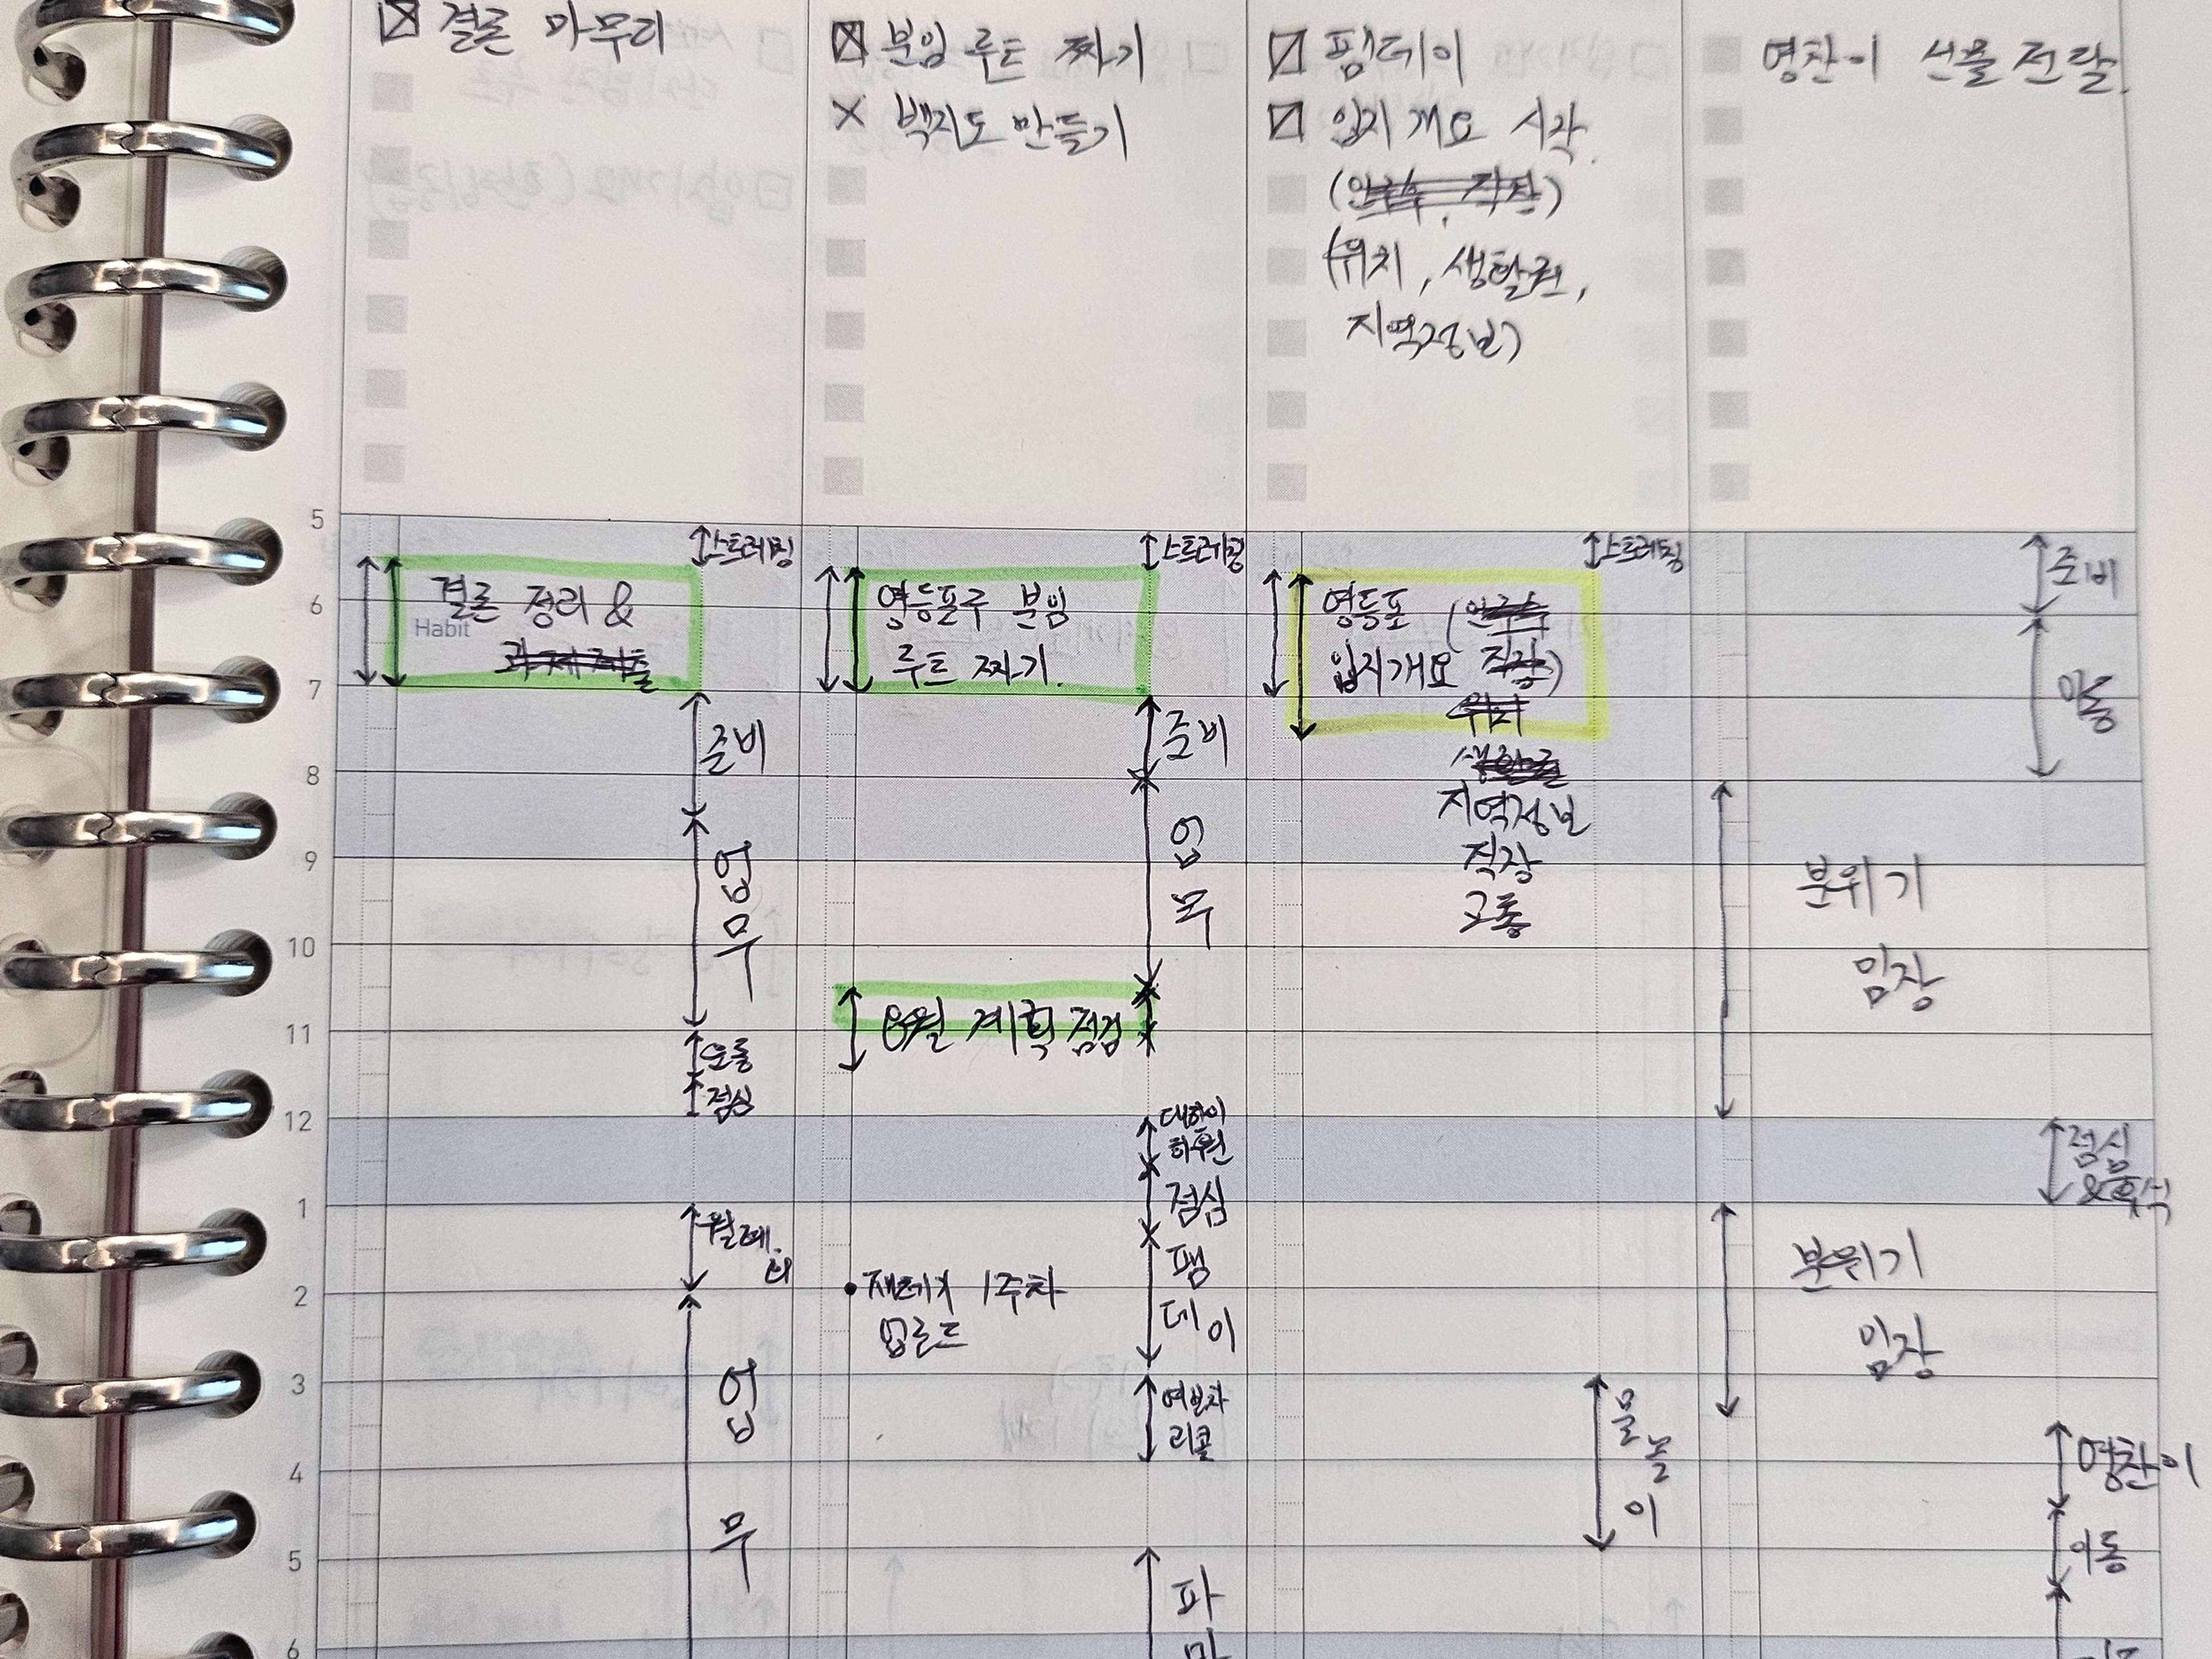 결론 마무리
분임 루트 짜기
백지도 만들기
팸데이
입지개요 시작
(위치, 생활권,
지역정보)
영찬이 선물 전달.
5
6
7
8
9
10
11
12
1
2
3
4
5
6
스트레칭
결론 정리 &
Habit
준비
업무
운동
점심
업무
스트레칭
영등포구 분임
루트 짜기.
준비
업무
8월 계획 점검
하원
점심
팸데이
재테기 1주차
업로드
리콜
파
스트레칭
영등포
입지개요
지역정보
직장
교통
물놀이
준비
이동
분위기
임장
점심
&휴식
분위기
임장
영찬이
이동